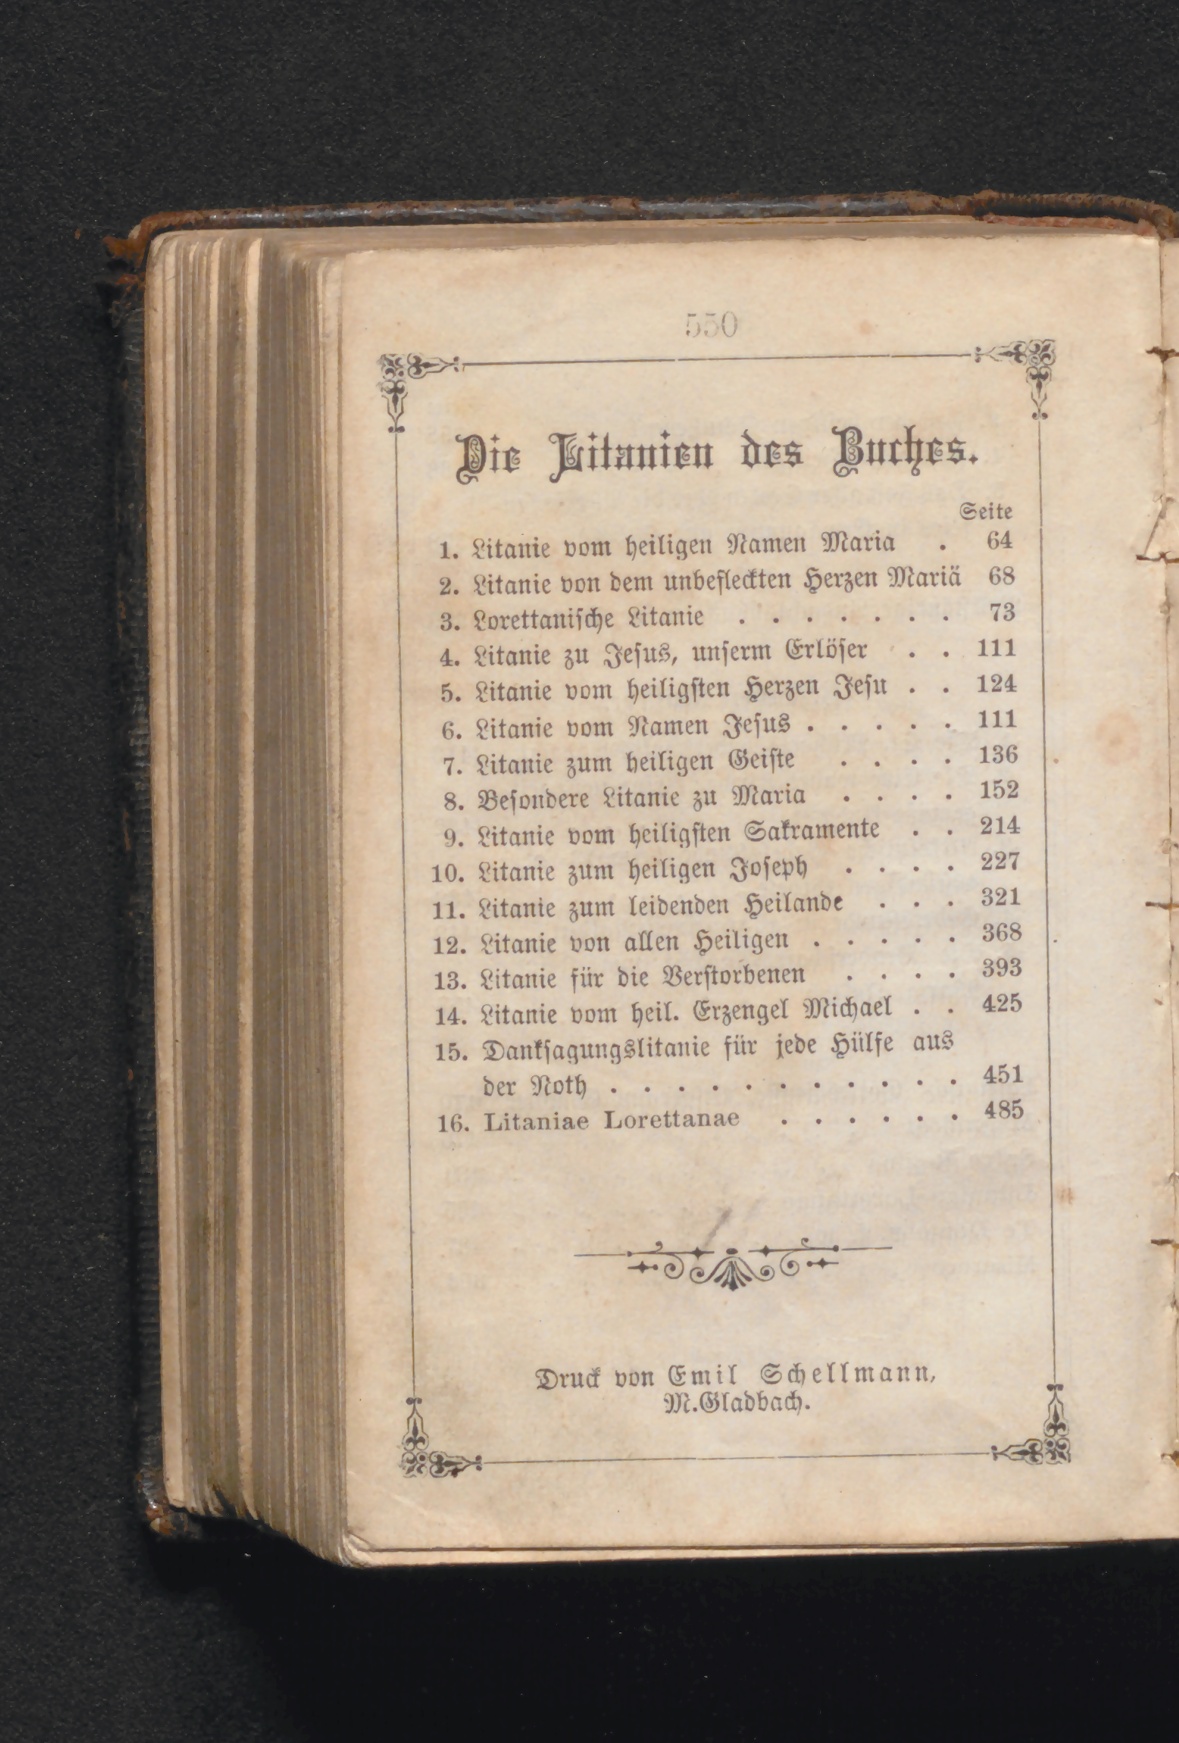 550
Die Litanien des Buches.
Seite
1. Litanie vom heiligen Namen Maria . 64
2. Litanie von dem unbefleckten Herzen Mariä 68
3. Lorettanische Litanie . . . . . . . 73
4. Litanie zu Jesus, unserm Erlöser . . 111
5. Litanie vom heiligsten Herzen Jesu . . 124
6. Litanie vom Namen Jesus . . . . . 111
7. Litanie zum heiligen Geiste . . . . 136
8. Besondere Litanie zu Maria . . . . 152
9. Litanie vom heiligsten Sakramente . . 214
10. Litanie zum heiligen Joseph . . . . 227
11. Litanie zum leidenden Heilande . . . 321
12. Litanie von allen Heiligen . . . . . 368
13. Litanie für die Verstorbenen . . . . 393
14. Litanie vom heil. Erzengel Michael . . 425
15. Danksagungslitanie für jede Hülfe aus
der Noth . . . . . . . . . . . 451
16. Litaniae Lorettanae . . . . . . 485
Druck von Emil Schellmann,
M.Gladbach.